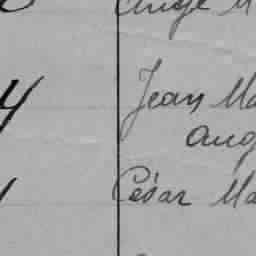 Ange M
Jean Ma
Aug
César Ma